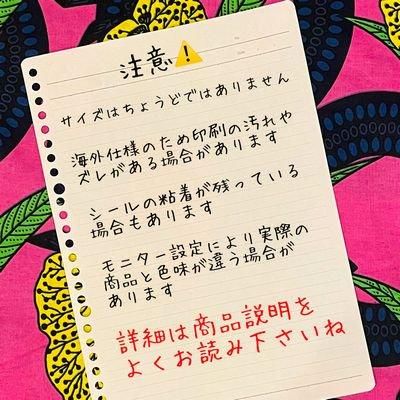 注意⚠️
サイズはちょうどではありません
海外仕様のため印刷の汚れや
ズレがある場合があります
シールの粘着が残っている
場合もあります
モニター設定により実際の
商品と色味が違う場合が
あります
詳細は商品説明を
よくお読み下さいね